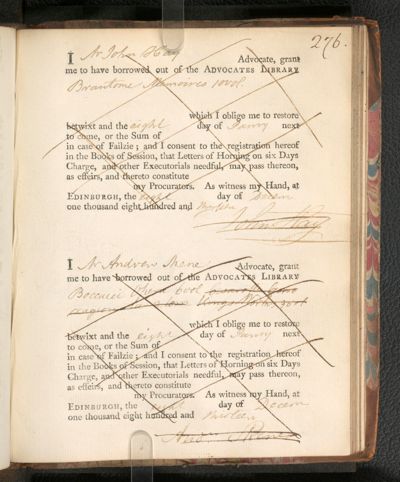 276.
I Mr John Hay Advocate, grant
me to have borrowed out of the ADVOCATES LIBRARY
Brantome Memoires 10 vol.
which I oblige me to restore
betwixt and the eight day of Janry next
to come, or the Sum of
in case of Failzie; and I consent to the registration hereof
in the Books of Session, that Letters of Horning on six Days
Charge, and other Executorials needful, may pass thereon,
as effeirs, and thereto constitute
my Procurators. As witness my Hand, at
EDINBURGH, the eight day of Decem
one thousand eight hundred and
John Hay
I Mr Andrew Skene Advocate, grant
me to have borrowed out of the ADVOCATES LIBRARY
Boccacci Opera 6 vol
which I oblige me to restore
betwixt and the eight day of Janry next
to come, or the Sum of
in case of Failzie; and I consent to the registration hereof
in the Books of Session, that Letters of Horning on six Days
Charge, and other Executorials needful, may pass thereon,
as effeirs, and thereto constitute
my Procurators. As witness my Hand, at
EDINBURGH, the eight day of Decem
one thousand eight hundred and
Andw Skene